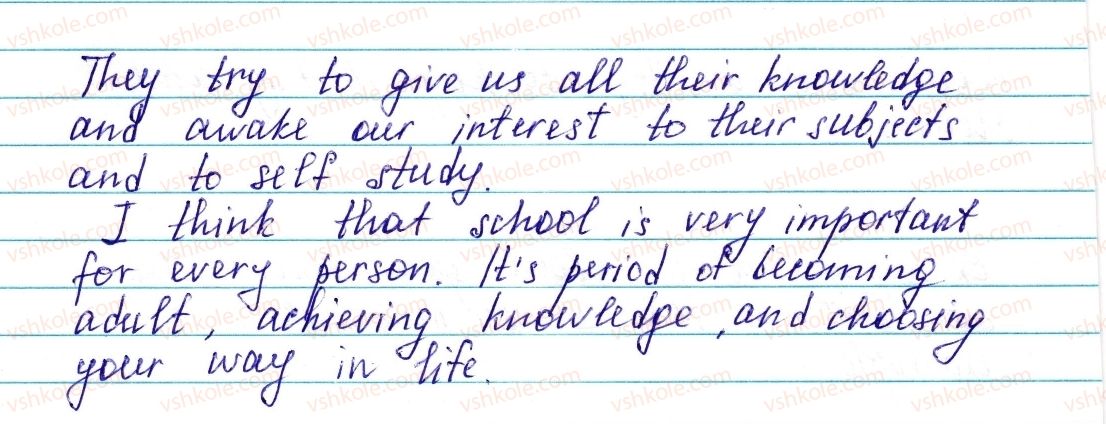 They try to give us all their knowledge
and awake our interest to their subjects
and to self study.
I think that school is very important
for every person. It's period of becoming
adult, achieving knowledge, and choosing
your way in life.